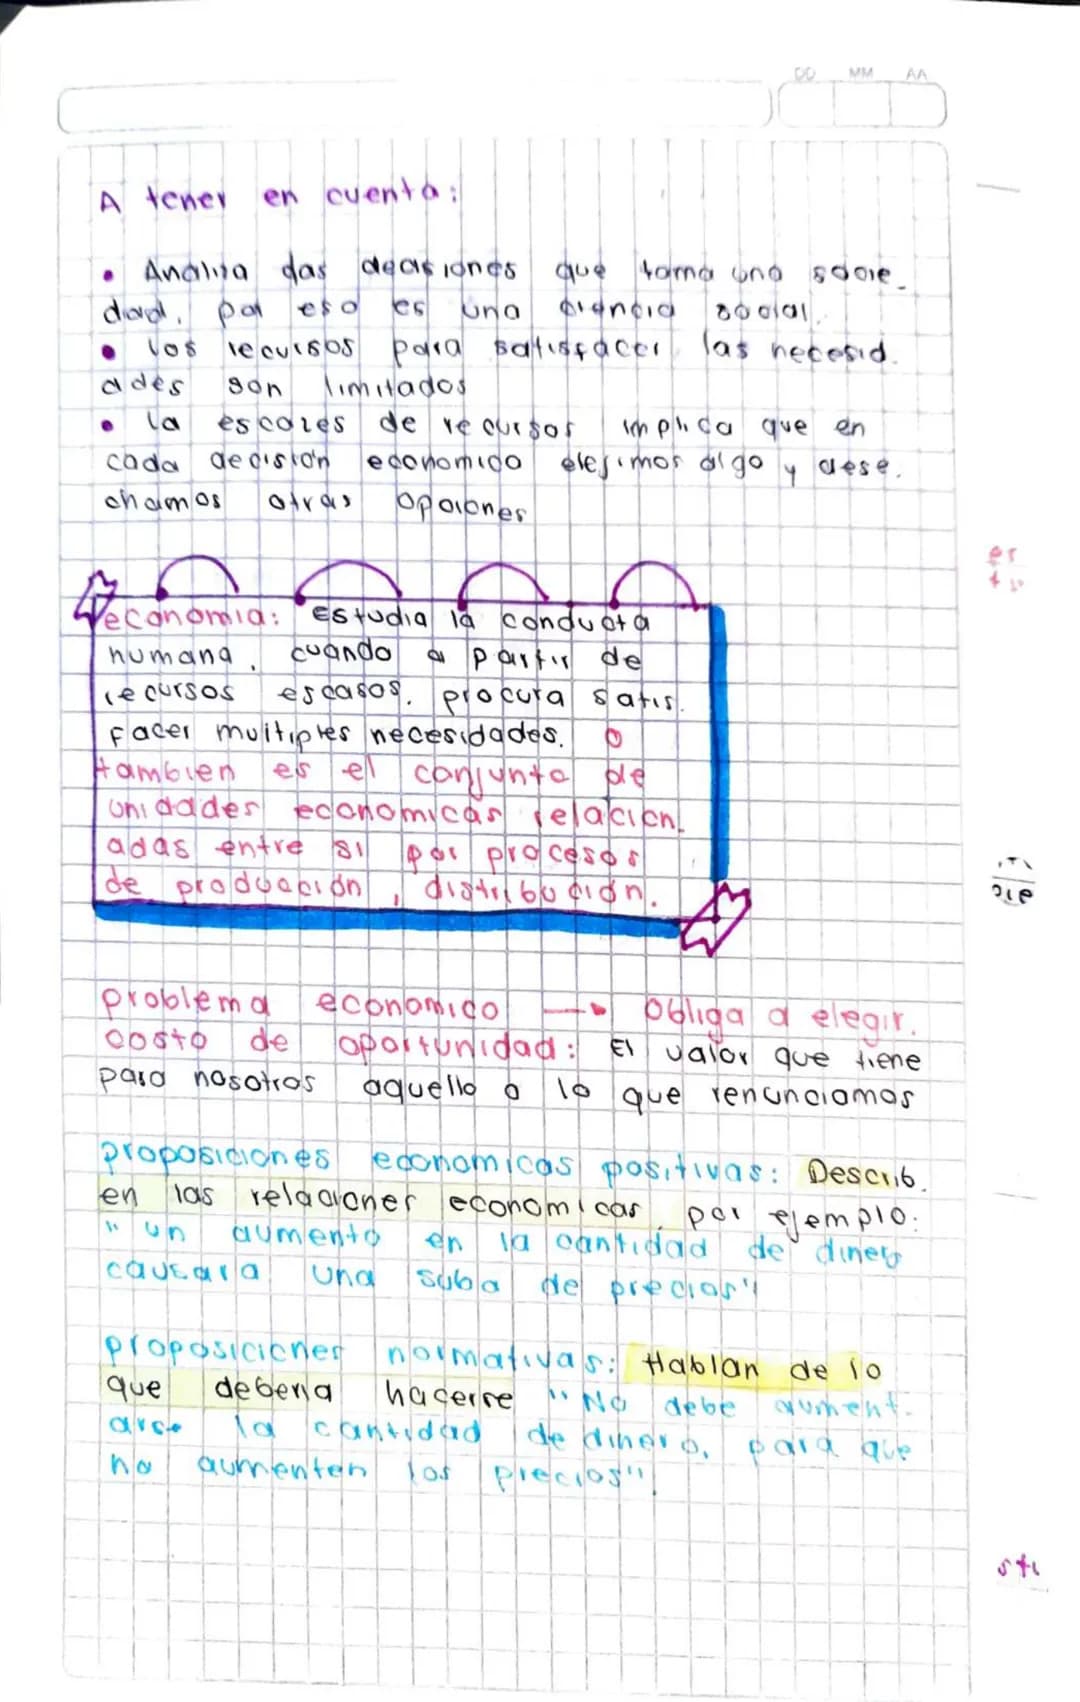 DD MM AA
A tener en cuenta:
• Analiza las decisiones que toma una socie_
dad, por eso es una ciencia social.
• los recursos para satisfacer las necesid.
ades son limitados
• la escases de recursos implica que en
cada decision economica elejimos algo y dese.
chamos otras opciones
economia: Estudia la conducta
humana, cuando a partir de
recursos escasos, procura satis.
facer multiples necesidades. O
tambien es el conjunto de
unidades economicas relacion_
adas entre si por procesos
de producción, distribución.
problema economico → Obliga a elegir.
costo de oportunidad: El valor que tiene
para nosotros aquello a lo que renunciamos
proposiciones economicas positivas: Describ.
en las relaciones economicas, por ejemplo:
"un aumento en la cantidad de dinero
causara una suba de precios"
proposiciones normativas: Hablan de lo
que deberia hacerse "No debe aument.
arse la cantidad de dinero, para que
no aumenten los precios"